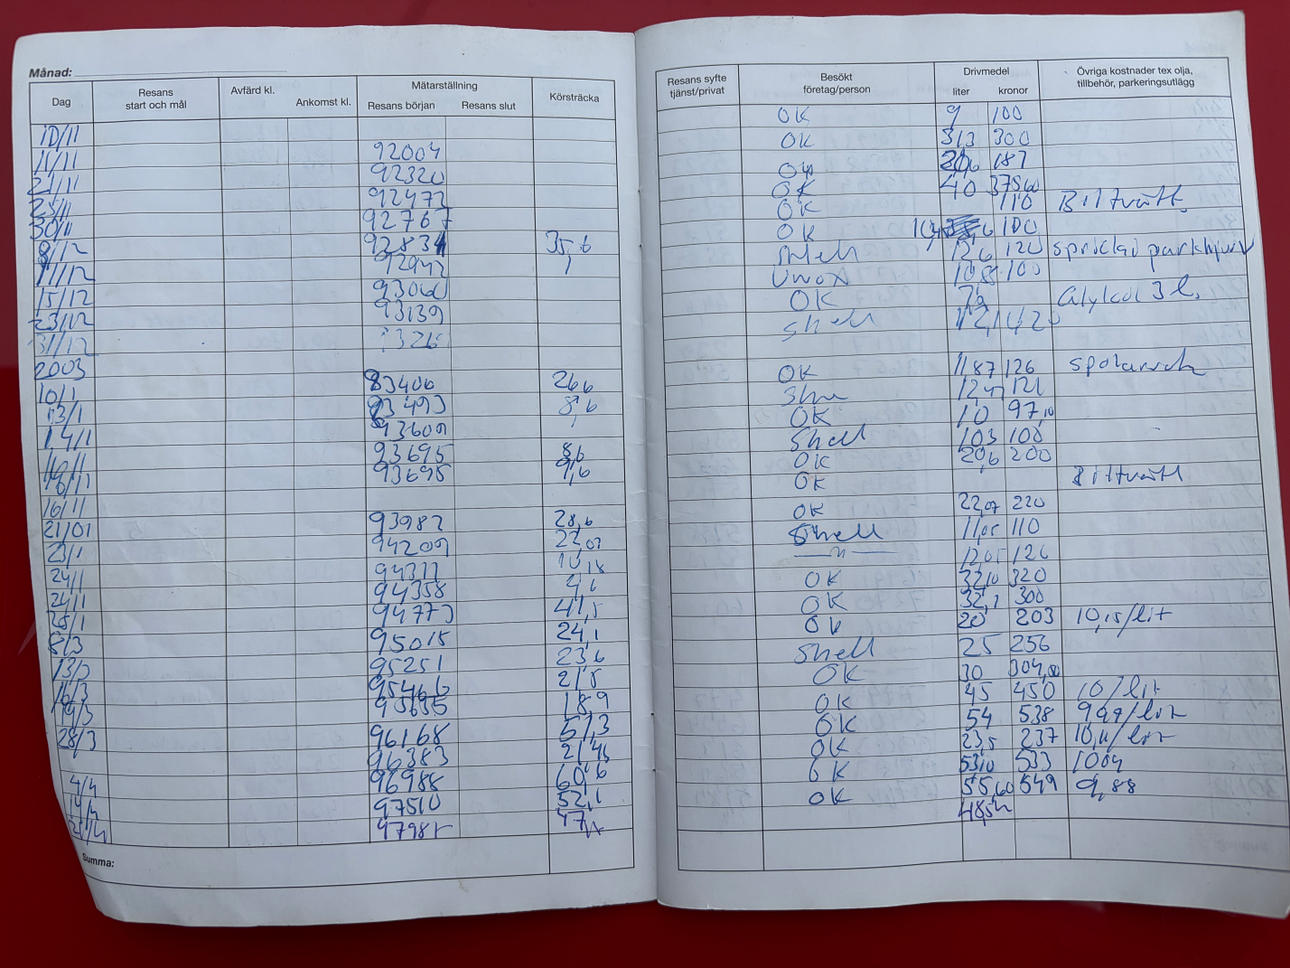 Månad:
Dag Resans start och mål Avfärd kl. Ankomst kl. Mätarställning Resans början Resans slut Körsträcka
10/11
11/11 92004
21/11 92320
25/11 92472
30/11 92767
8/12 92834 35,6
11/12 92942
15/12 93060
23/12 93139
31/12 9326
2003
10/1 93406 26,6
13/1 93493 8,6
14/1 93609
16/1 93695 8,6
16/1 93695 9,6
16/1
21/01 93982 28,6
23/1 94209 22,07
24/1 94311 10,18
24/1 94358 4,6
28/1 94773 41,5
8/3 95015 24,1
13/3 95251 23,6
16/3 95466 21,5
19/3 95655 18,9
28/3 96168 51,3
96383 21,45
4/4 96988 60,6
14/4 97510 52,1
97981 47
Summa:
Resans syfte tjänst/privat Besökt företag/person Drivmedel liter kronor Övriga kostnader tex olja, tillbehör, parkeringsutlägg
OK 9 100
OK 313 300
OK 187
OK 40 375,60
OK 110 Biltvätt
OK 100
Shell 12,6 120
Unox 10,8 100
OK 79 Glykol 3 l,
Shell 12,1 120
OK 11,87 126
12,47 121
OK 10 97,10
Shell 103 100
OK 20,6 200
OK Biltvätt
OK 22,07 220
Shell 11,05 110
— " — 12,05 126
OK 32,10 320
OK 32,1 300
OK 20 203 10,15/lit
Shell 25 256
OK 30 304,80
OK 45 450 10/lit
OK 54 538 9,99/lit
OK 23,5 237 10,11/lit
OK 53,0 533 1004
OK 55,60 549 9,88